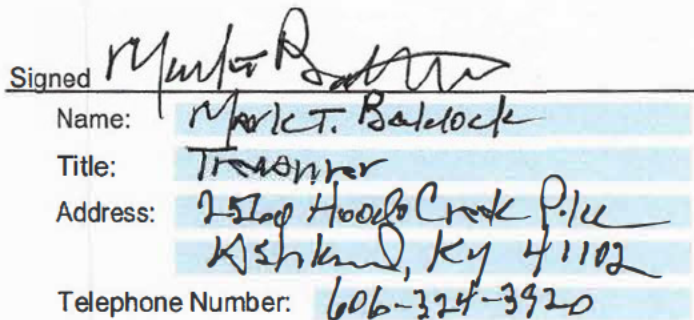 Signed
Name: Mark T. Baldock
Title: Treasurer
Address: 2560 Hoods Creek Pike
Ashland, Ky 41102
Telephone Number: 606-324-3920